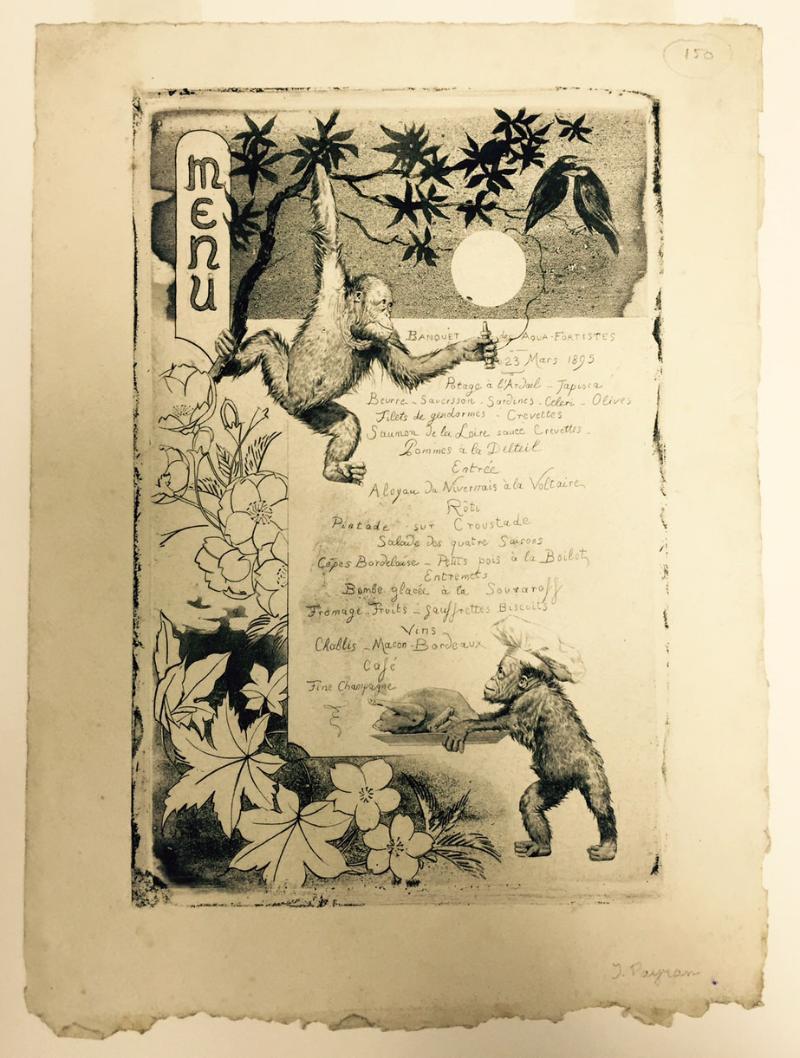 150
MENU
BANQUET des AQUA-FORTISTES
23 Mars 1895
Potage à l'Ardoil - Tapioca
Beurre - Saucisson - Sardines - Céleri - Olives
Filets de gendarmes - Crevettes
Saumon de la Loire sauce Crevettes -
Pommes à la Delteil
Entrée
Aloyau du Nivernais à la Voltaire
Rôti
Pintade sur Croustade
Salade des quatre Saisons
Cèpes Bordelaise - Petits pois à la Boilot
Entremets
Bombe glacée à la Souvaroff
Fromage - Fruits - Gauffrettes Biscuits
Vins
Chablis - Macon - Bordeaux
Café
Fine Champagne
J. Payran